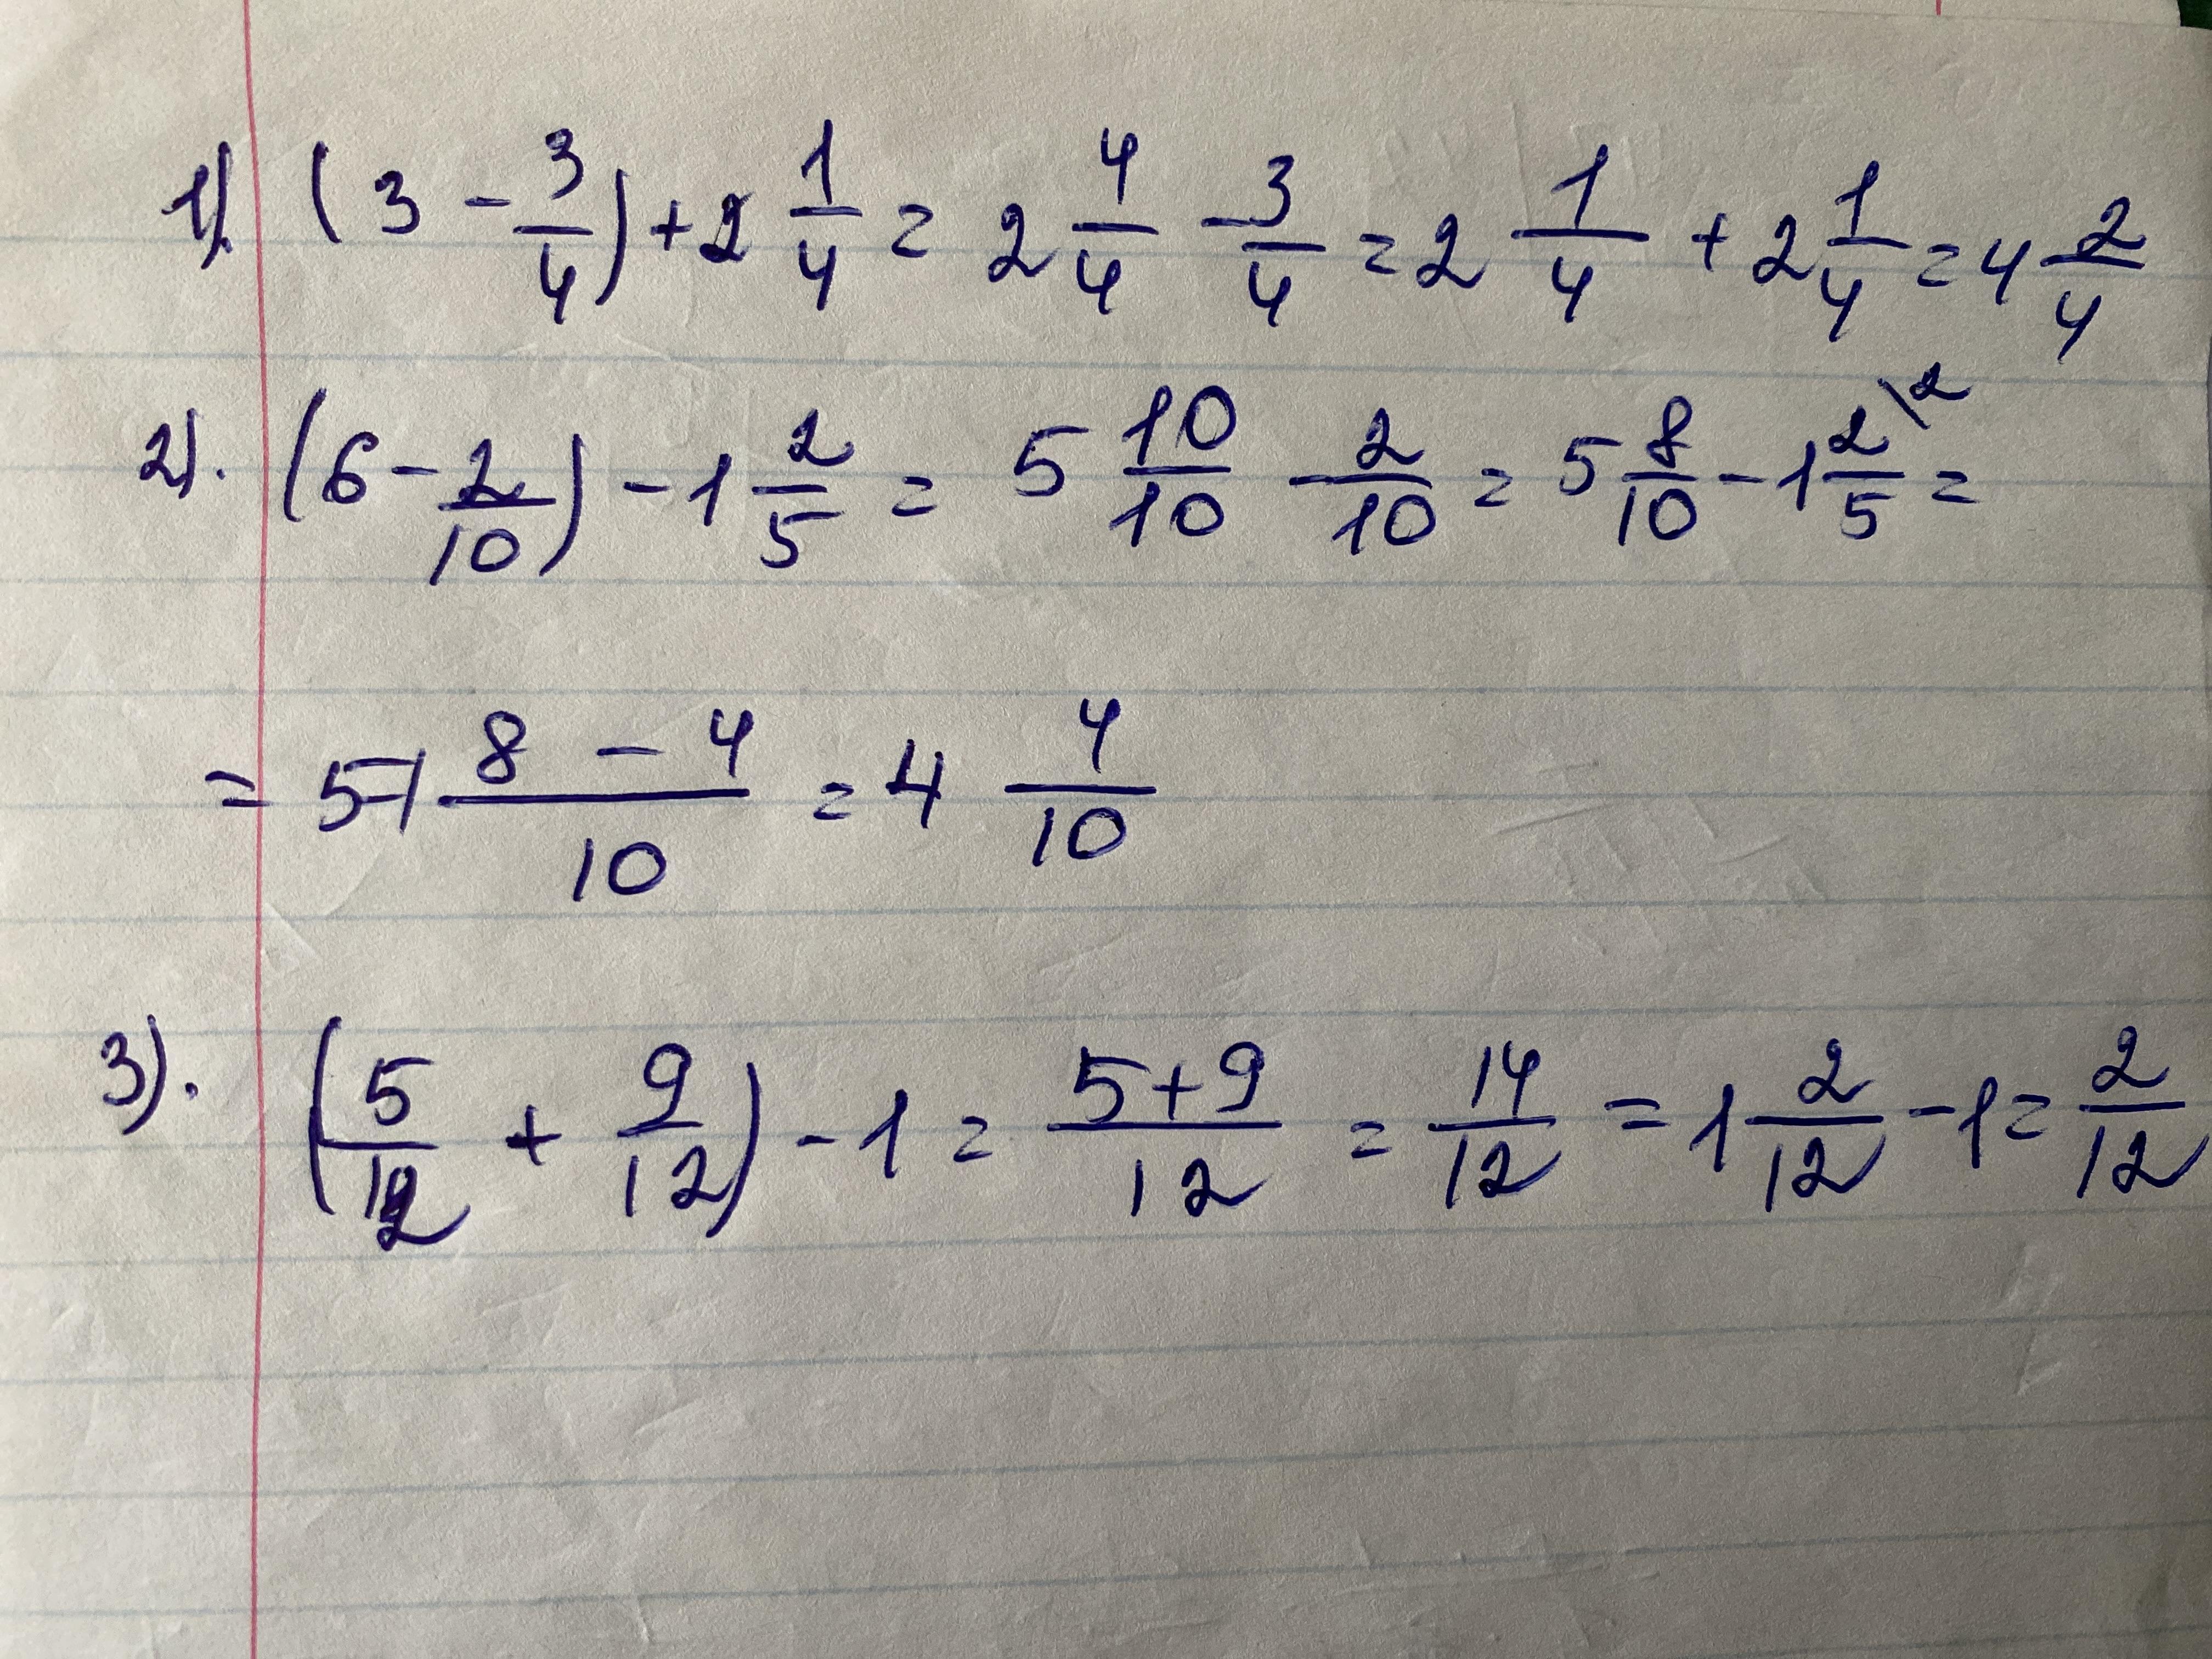 1). (3 - 3/4) + 2 1/4 = 2 4/4 - 3/4 = 2 1/4 + 2 1/4 = 4 2/4
2). (6 - 2/10) - 1 2/5 = 5 10/10 - 2/10 = 5 8/10 - 1 2\2/5 =
= 5-1 8 - 4/10 = 4 4/10
3). (5/12 + 9/12) - 1 = 5+9/12 = 14/12 = 1 2/12 - 1 = 2/12